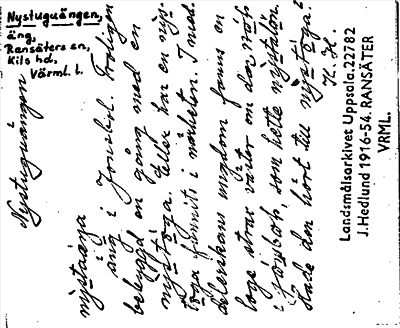 Nystuguängen,
äng,
Ransäters sn,
Kils hd,
Värml. l.
Nystuguängen
nystôgäɳa
äng i Jonsbol. Troligen
bebyggd en gång med en
nystôga. Eller har en nys-
tôga funnits i närheten. I med-
delerskans ungdom fanns en
loge strax väster om den
i gärdet, som hette nystulôn.
Hade den hört till nystôga?
H. H.
Landsmålsarkivet Uppsala. 22782
J. Hedlund 1916-54. RANSÄTER
VRML.